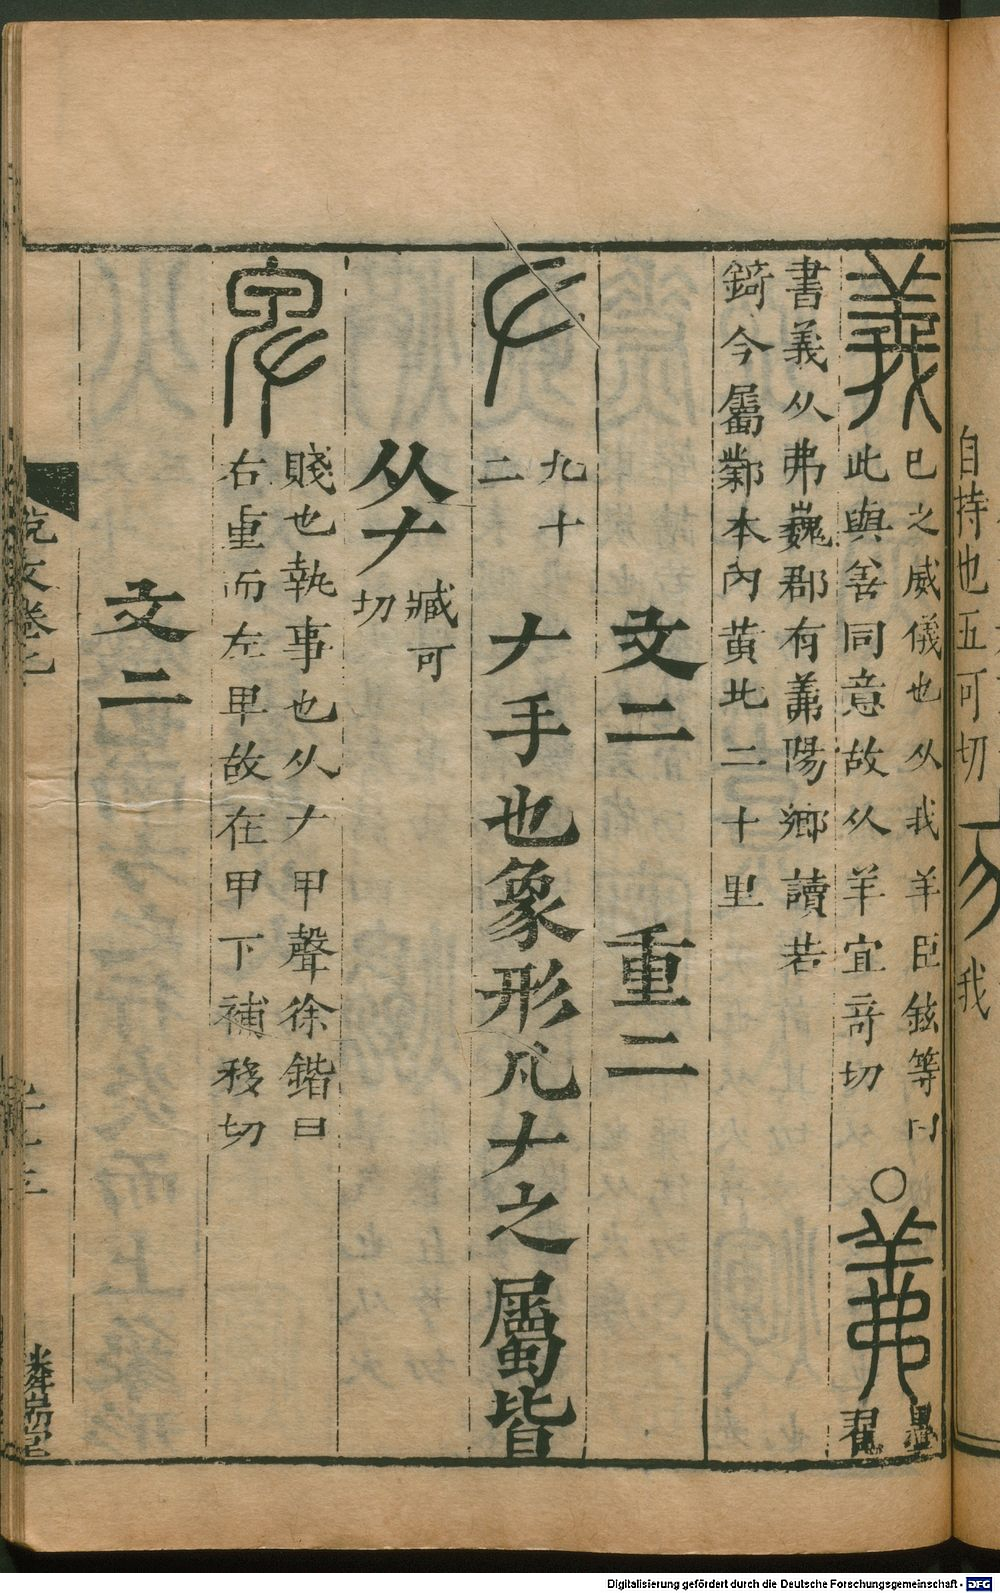 自持也五可切
我
義
己之威儀也从我羊臣鉉等曰
此與善同意故从羊宜奇切
○羛
墨翟
書義从弗巍郡有羛陽鄉讀若
錡今屬鄴本內黃北二十里
文二 重二
𠂇
九十
二
𠂇手也象形凡𠂇之屬皆
从𠂇
臧可
切
卑
賤也執事也从𠂇甲聲徐鍇曰
右重而左卑故在甲下補移切
文二
說文卷
麟瑞堂
Digitalisierung gefördert durch die Deutsche Forschungsgemeinschaft - DFG